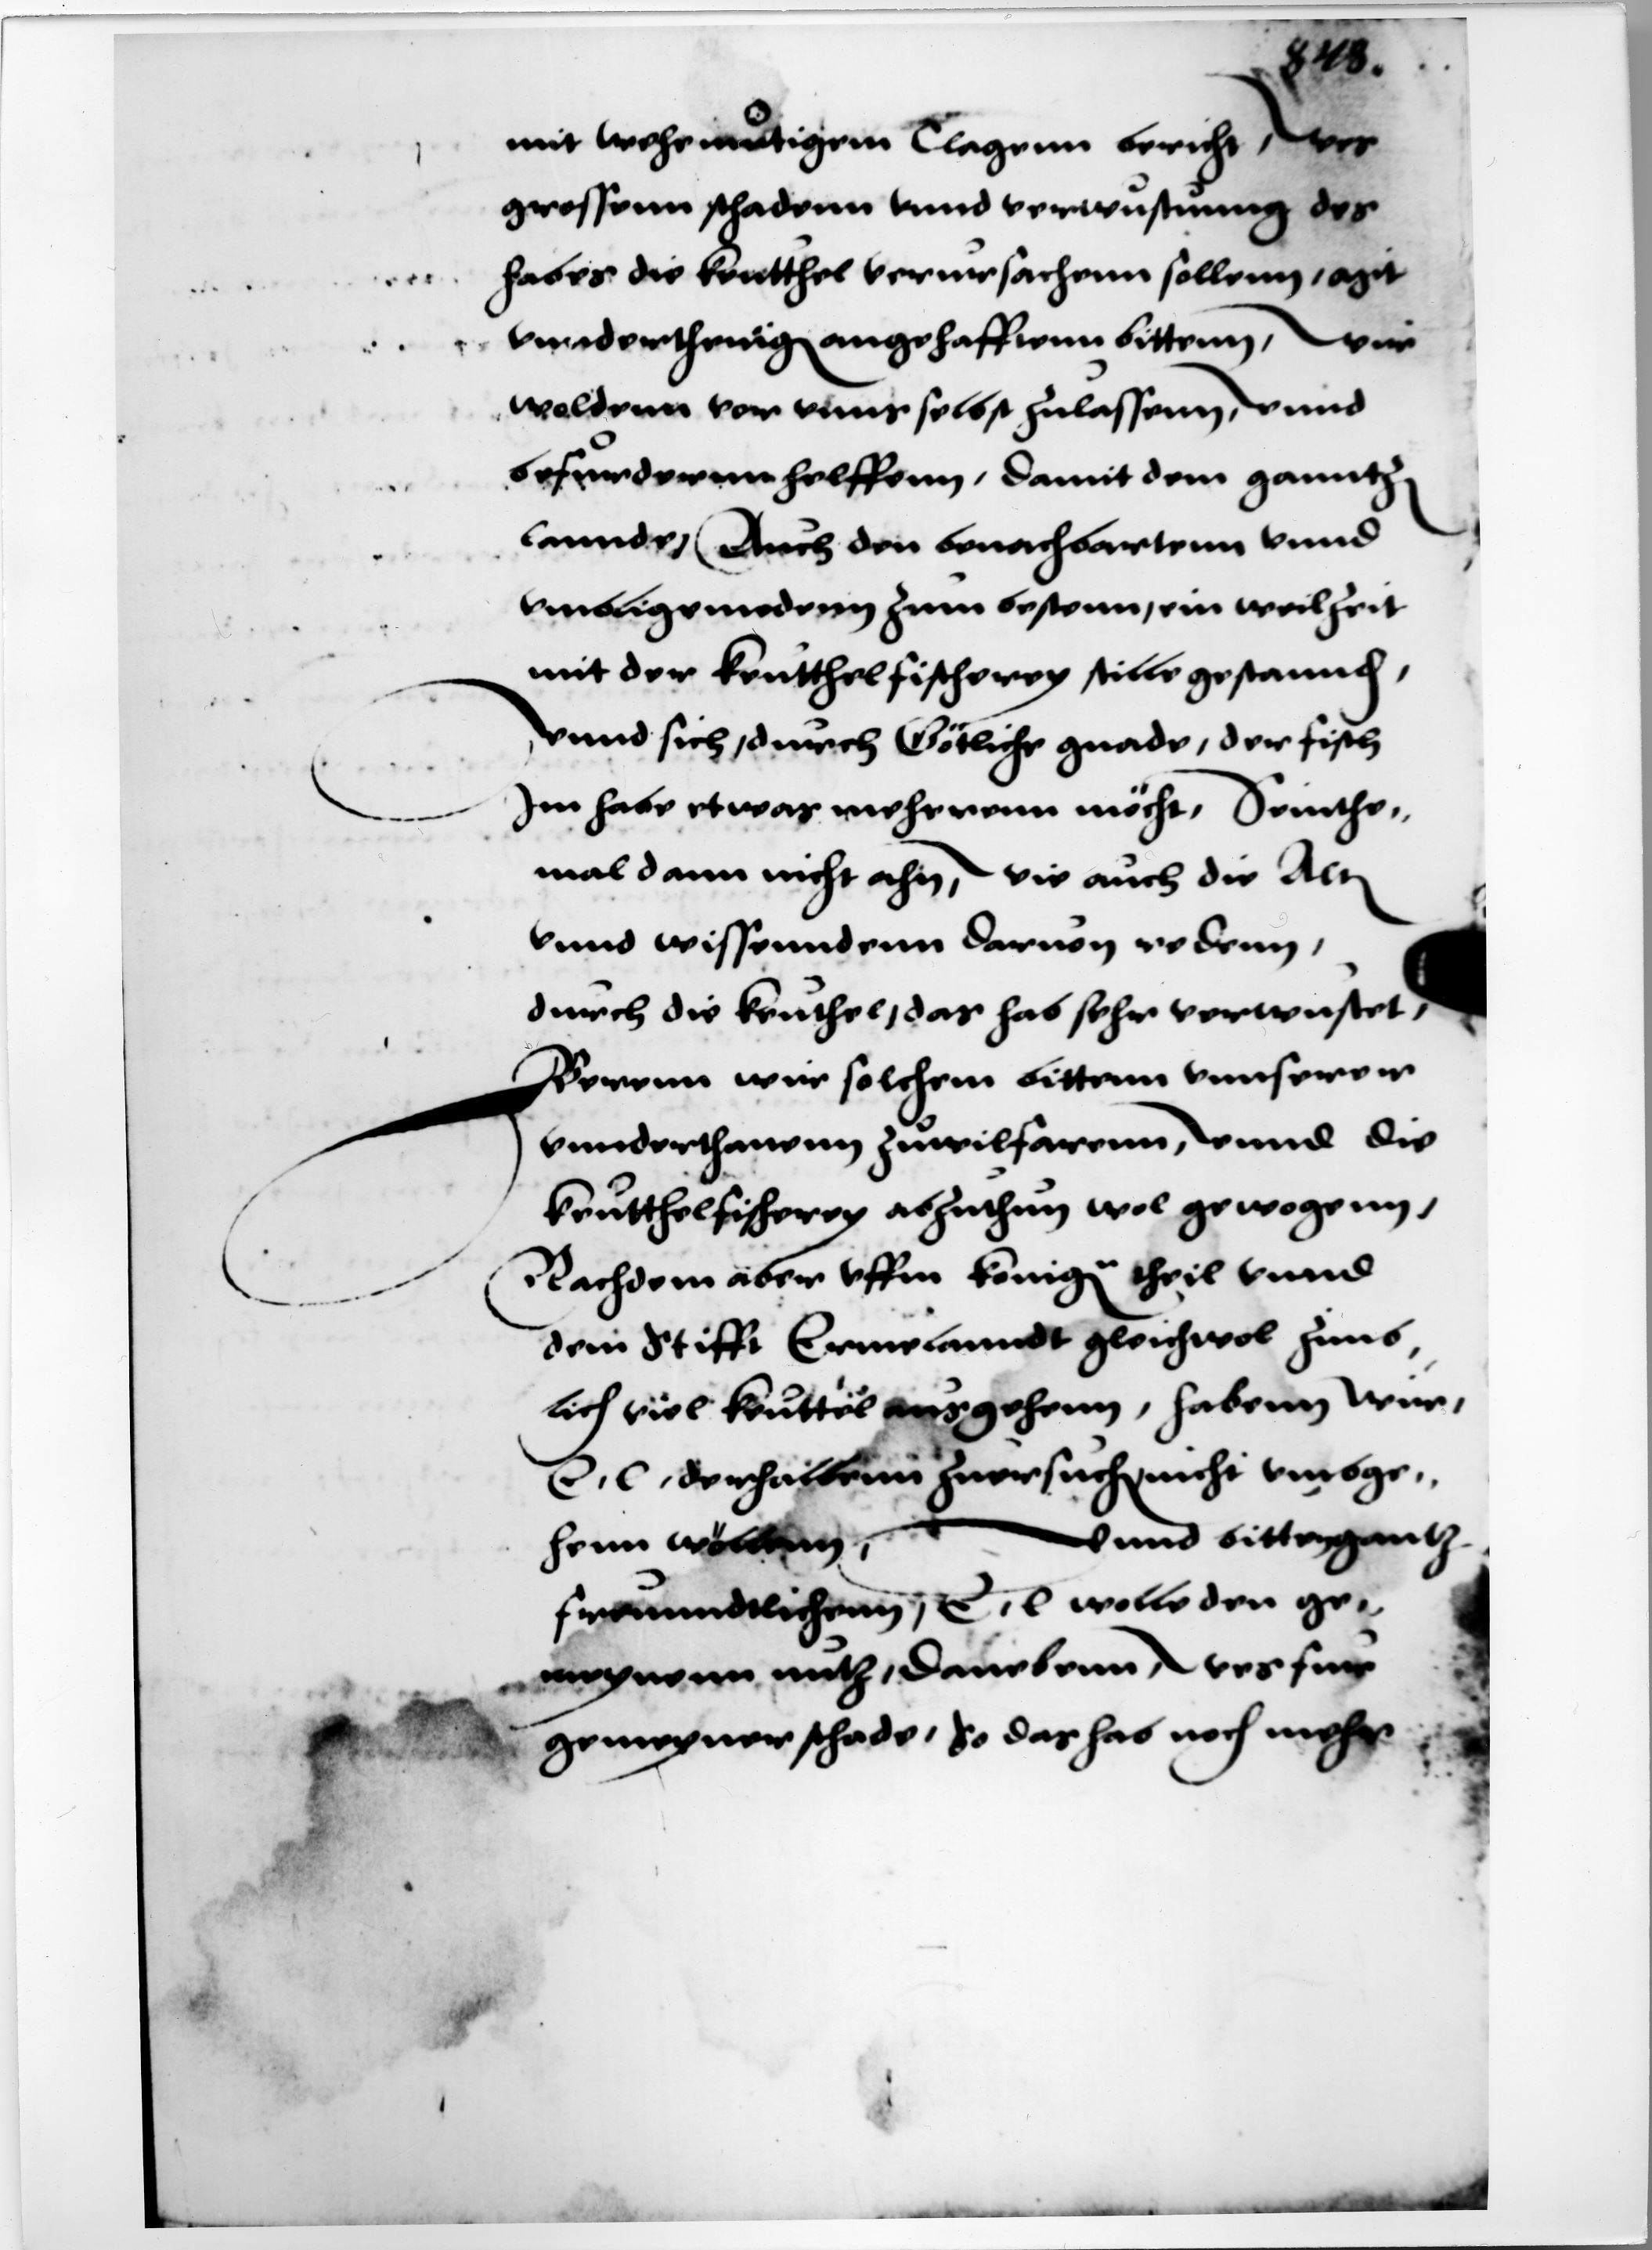 848.
mit wehemutigem Clagenn bericht, wes
grossenn schadenn vnnd verwustung des
habes die keutthel verursachenn sollenn, mit
vnnderthenig angehafftenn bittenn, wir
woldenn vor vnns selbst zulassenn, vnnd
befurdernn helffenn, damit dem ganntz
lannde, Auch den benachbartenn vnnd
vmbligenndenn zum bestenn, ein weilzeit
mit der keutthelfischerey stille gestannd,
vnnd sich, durch Götliche gnade, der fisch
Im habe etwas mehrenn möcht, Seinthe„
mal dann nicht ahn, wie auch die Alt
vnnd wissenndenn daruon redenn,
durch die keuthel, das hab sehr verwustet,
Werenn wir solchem bittenn vnnserer
vnnderthanenn zuwilfarenn, vnnd die
keutthelfischerey abzuthun wol gewogenn,
Nachdem aber vffm könig theil vnnd
dem Stifft Ermelanndt gleichwol zimb„
lich viel keuttel ausgehenn, habenn wir,
E. l. derhalbenn zuersuch nicht vmbge„
henn wöllenn, vnnd bitten gantz
freunndtlichenn, E. l wolle den ge„
meynenn nutz, Danebenn, wes fur
gemeyner schade, So das hab noch mehr